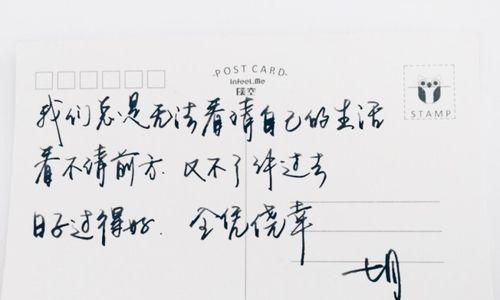 POST CARD
InFeeL.Me
STAMP
我们总是无法看清自己的生活
看不清前方.又不了解过去
日子过得好.全凭侥幸
七月